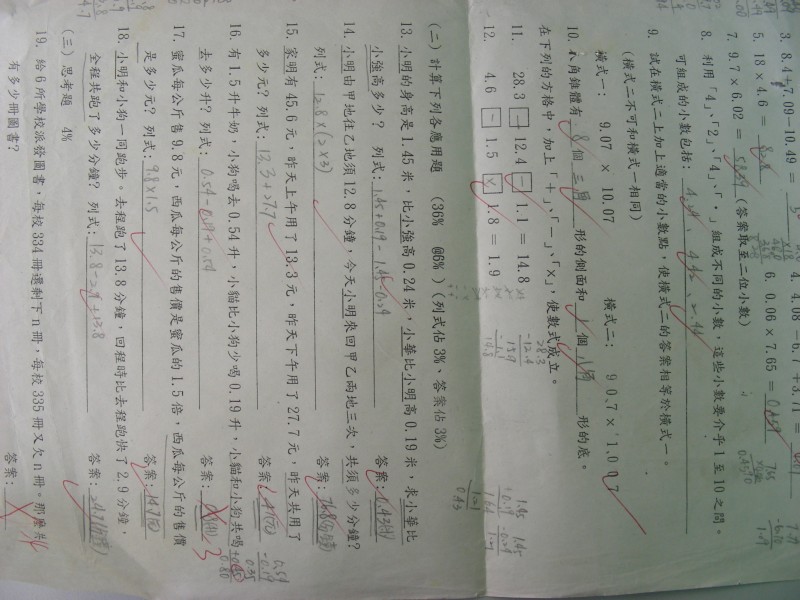 3. 8.4+7.09−10.49 =
4. 4.08−6.
5. 18×4.6 = 82.8
6. 0.06×7.65 =
7. 9.7×6.02 = (答案取至二位小數)
8. 利用「4」、「2」、「4」、「.」組成不同的小數,這些小數要介乎1至10之間。
可組成的小數包括: 4.24、4.42、2.44
9. 試在橫式二上加上適當的小數點,使橫式二的答案相等於橫式一。
(橫式二不可和橫式一相同)
橫式一: 9.07 × 10.07 橫式二: 907×1007
10. 八角錐體有 8 個 三角 形的側面和 1 個 八角 形的底。
在下列的方格中,加上「+」、「−」、「×」,使數式成立。
11. 28.3 − 12.4 − 1.1 = 14.8
12. 4.6 − 1.5 × 1.8 = 1.9
(二) 計算下列各應用題 (36% @6%) (列式佔3%、答案佔3%)
13. 小明的身高是1.45米,比小強高0.24米,小華比小明高0.19米,求小華比
小強高多少? 列式: 1.45+0.19−1.45−0.24 答案:
14. 小明由甲地往乙地須12.8分鐘,今天小明來回甲乙兩地三次,共須多少分鐘?
列式: 12.8×(2×3) 答案:
15. 家明有45.6元,昨天上午用了13.3元,昨天下午用了27.7元,昨天共用了
多少元? 列式: 13.3+27.7 答案: 41(元)
16. 有1.5升牛奶,小狗喝去0.54升,小貓比小狗少喝0.19升,小貓和小狗共喝
去多少升? 列式: 0.54−0.19+0.54 答案:
17. 蜜瓜每公斤售9.8元,西瓜每公斤的售價是蜜瓜的1.5倍,西瓜每公斤的售價
是多少元? 列式: 9.8×1.5 答案: 14.7(元)
18. 小明和小狗一同跑步。去程跑了13.8分鐘,回程時比去程跑快了2.9分鐘,
全程共跑了多少分鐘? 列式: 13.8−2.9+13.8 答案: 24.7(分鐘)
(三) 思考題 4%
19. 給6所學校派發圖書,每校334冊還剩下n冊,每校335冊又欠n冊。那麼共
有多少冊圖書? 答案: